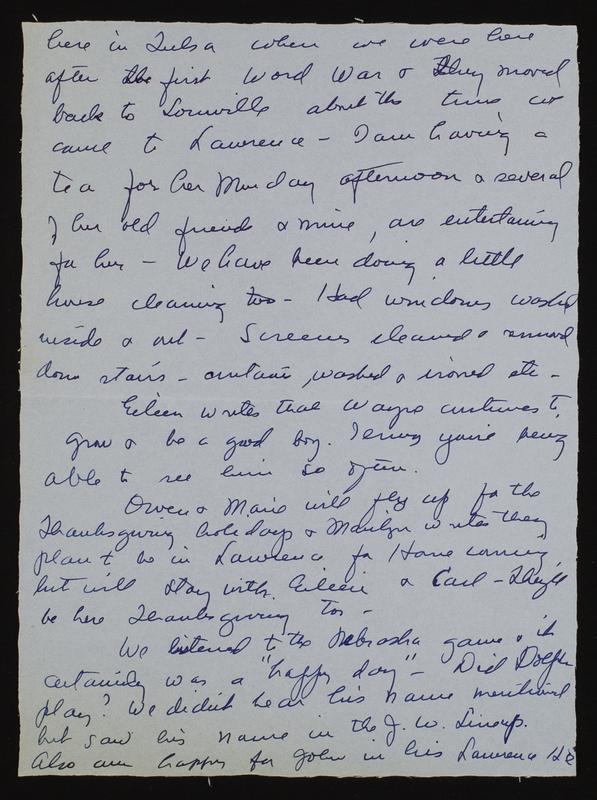 here in Tulsa when we were here
after the first Word War & they moved
back to Louisville about the time we
came to Lawrence – I am having a
tea for her Monday afternoon & several
of her old friends & mine, are entertaining
for her – We have been doing a little
house cleaning too – Had windows washed
inside & out – Screens cleaned & removed
down stairs – curtains, washed & ironed etc –
Eileen writes that Wayne continues to
grow & be a good boy. I envy you're being
able to see him so often.
Owen & Marie will fly up for the
Thanksgiving holidays & Marilyn writes they
plan to be in Lawrence for Home coming,
but will stay with Eileen & Carl – They'll
be here Thanksgiving too –
We listened to the Nebraska game & it
certainly was a "happy day" – Did Dolph
play? We didn't hear his name mentioned
but saw his name in the J. W. Lineup.
Also am happy for John in his Lawrence Hi